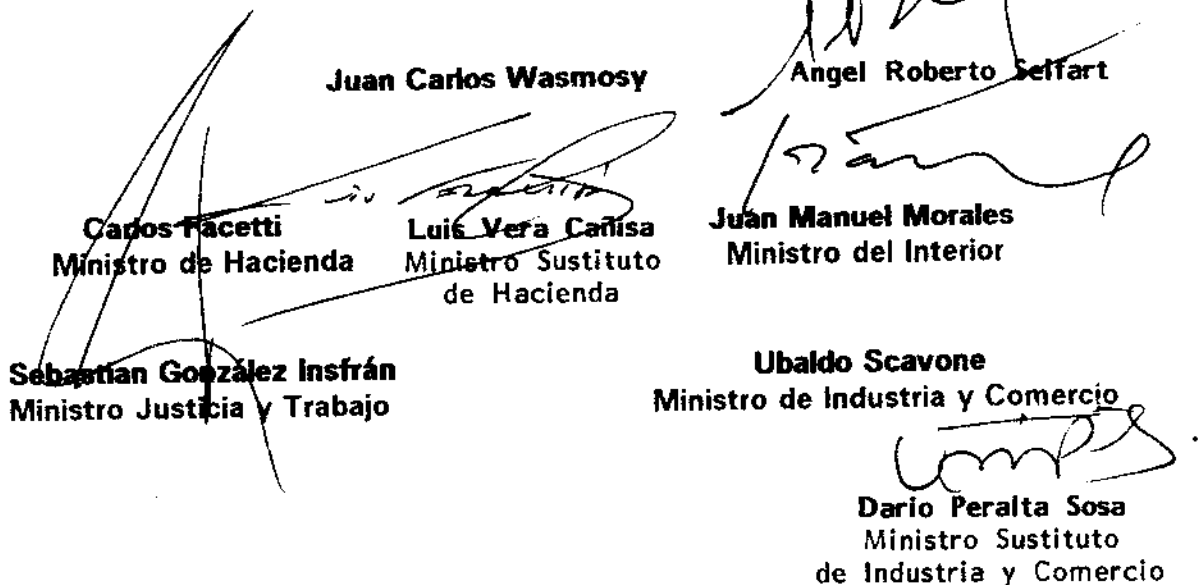 Juan Carlos Wasmosy
Angel Roberto Seifart
Carlos Facetti
Ministro de Hacienda
Luis Vera Cañisa
Ministro Sustituto
de Hacienda
Juan Manuel Morales
Ministro del Interior
Sebastian González Insfrán
Ministro Justicia y Trabajo
Ubaldo Scavone
Ministro de Industria y Comercio
Dario Peralta Sosa
Ministro Sustituto
de Industria y Comercio